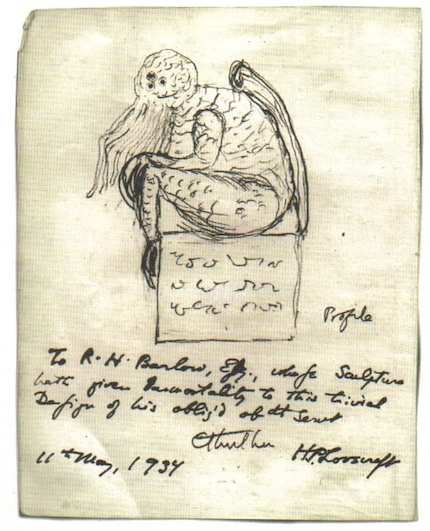 Profile
To R. H. Barlow, Esq., whose Sculpture
hath given Immortality to this trivial
Design of his oblig'd obt Servt
Cthulhu
H.P. Lovecraft
11th May, 1934